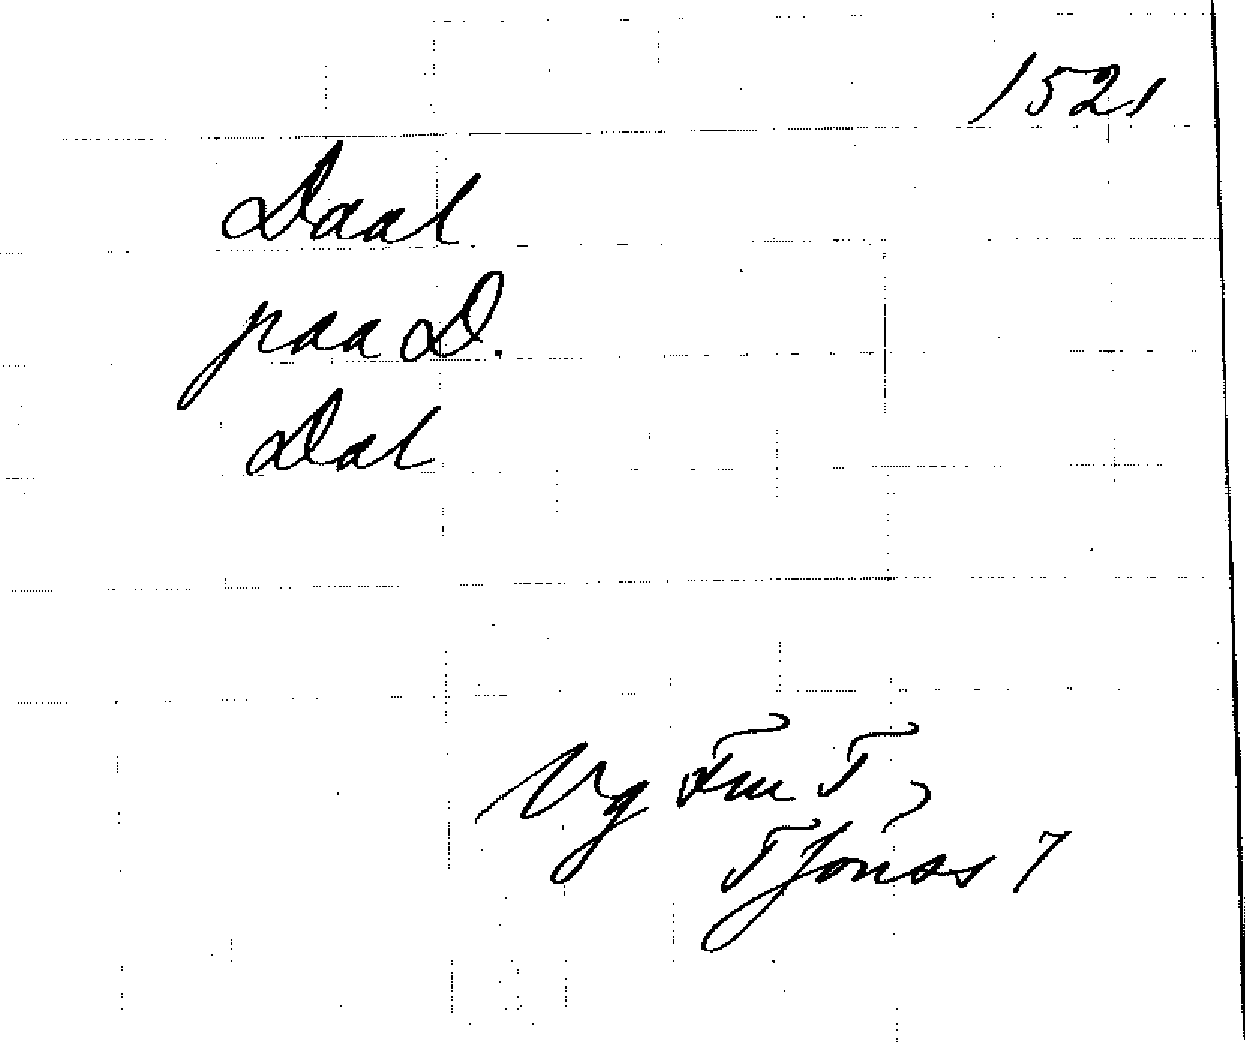 1521
Daal
paa D.
Dal
Vg Fm T,
Tjonas 7